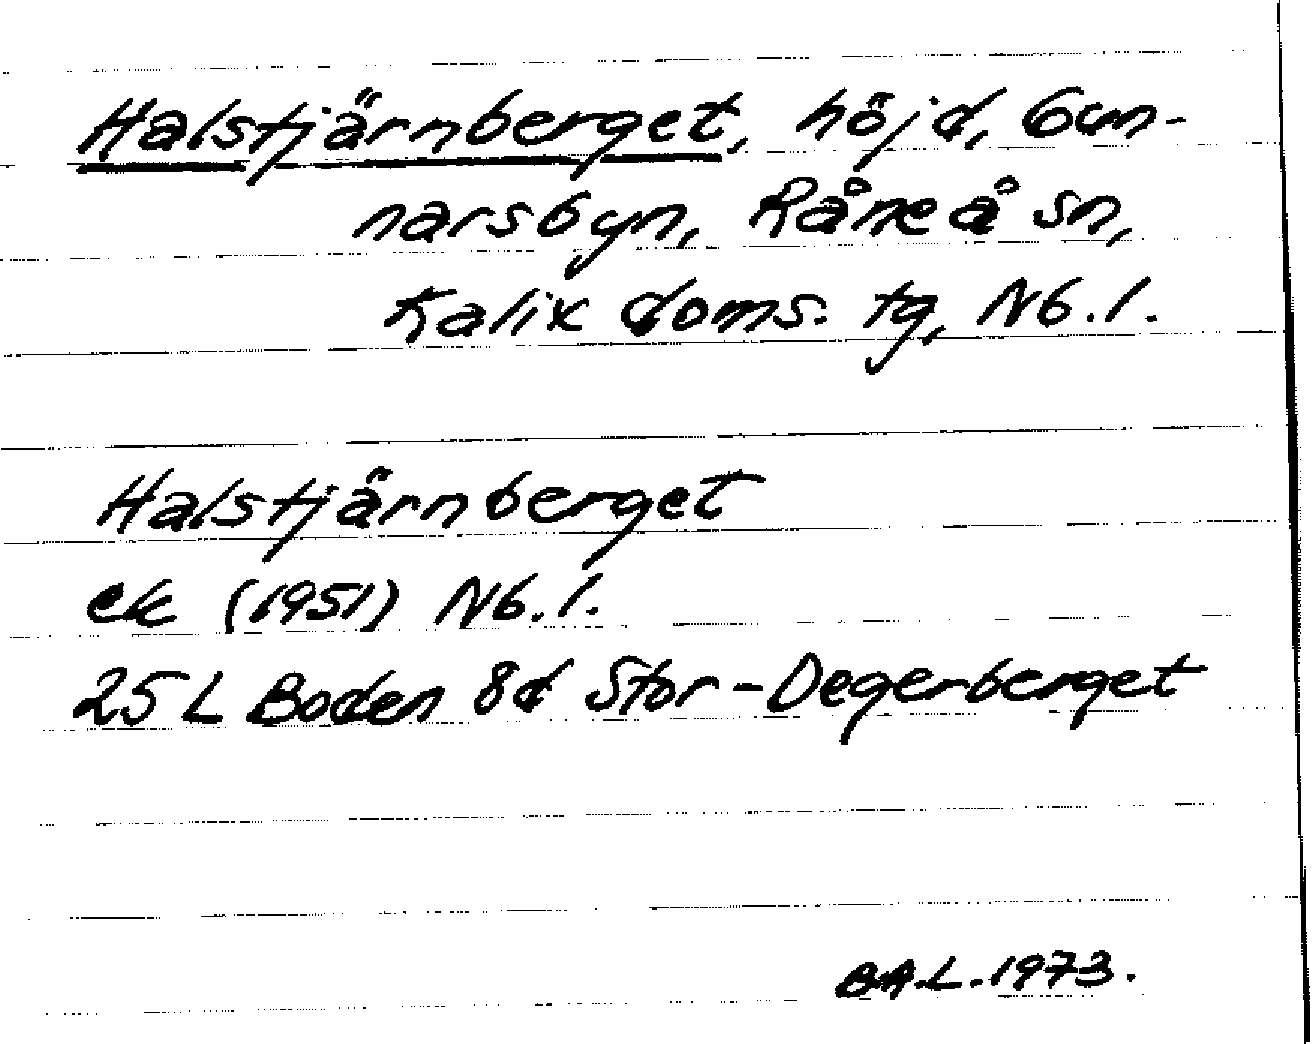 Halstjärnberget, höjd, Gun-
narsbyn, Råneå sn,
Kalix doms. tg, Nb. l.
Halstjärnberget
ek (1951) Nb. l.
25 L Boden 8d Stor-Degerberget
B.A.L. 1973.